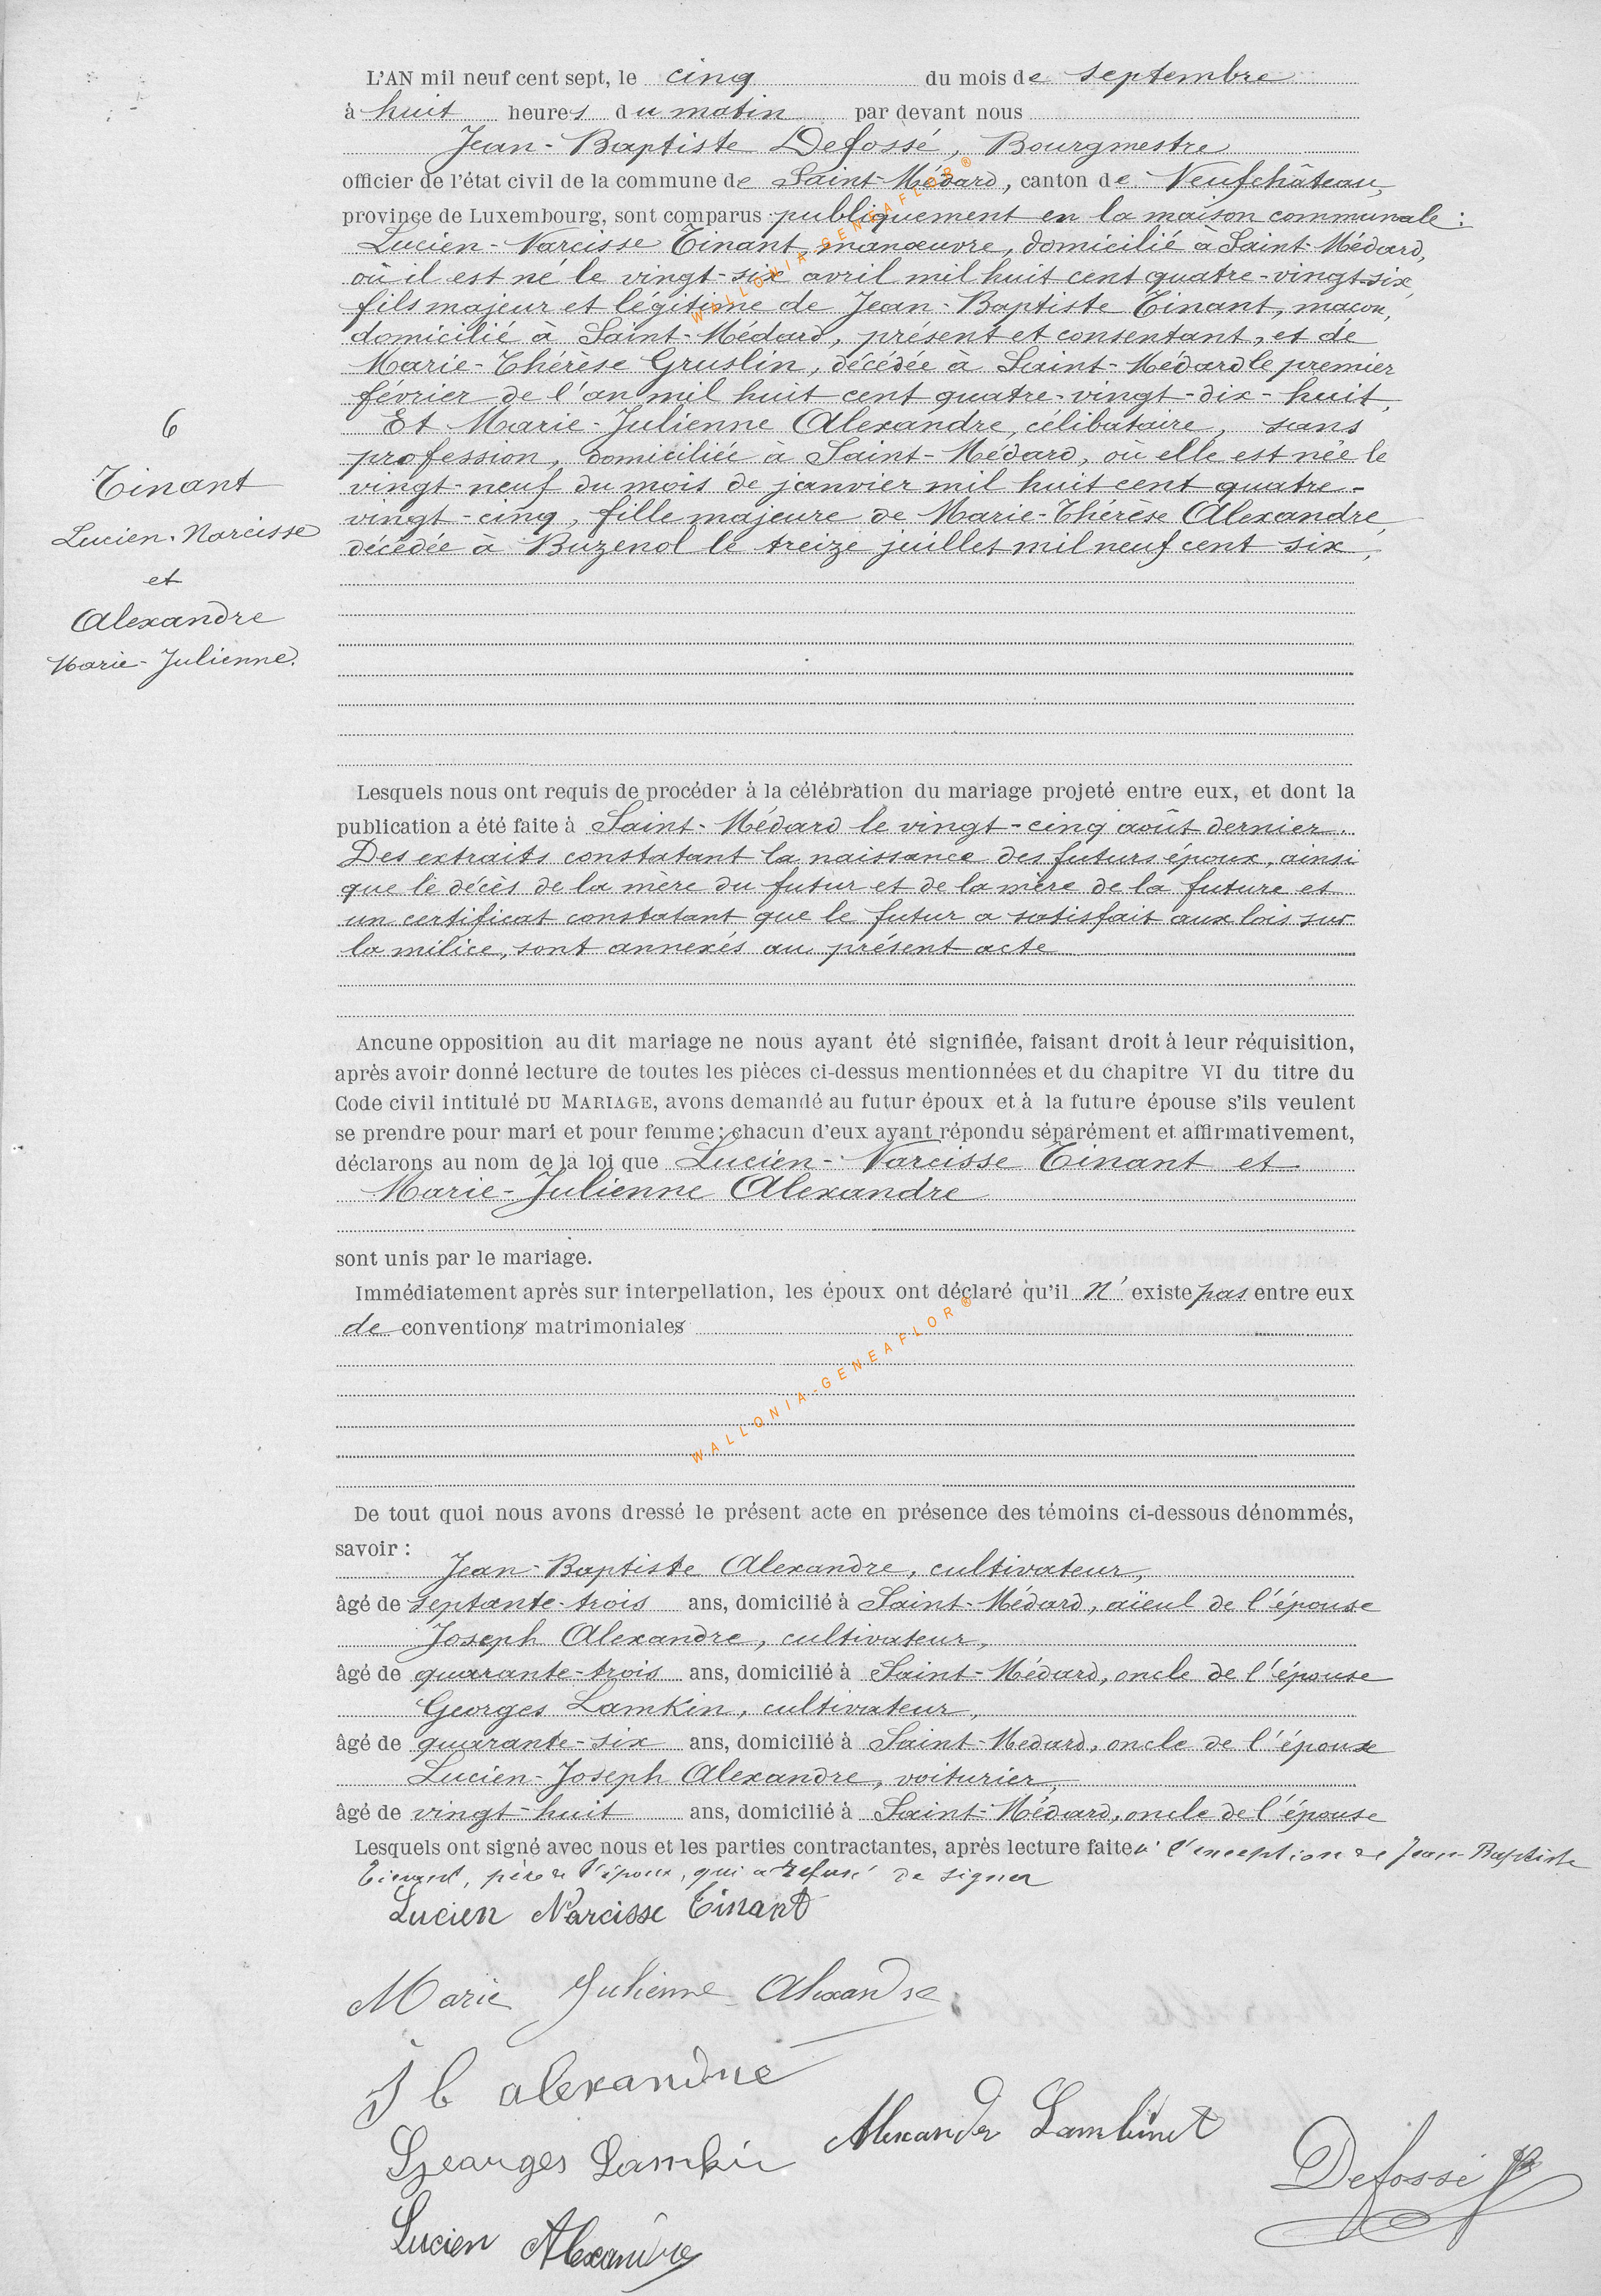 L'AN mil neuf cent sept, le cinq du mois de septembre
à huit heures du matin par devant nous
Jean-Baptiste Defossé, Bourgmestre
officier de l'état civil de la commune de Saint-Médard, canton de Neufchâteau,
province de Luxembourg, sont comparus publiquement en la maison communale :
Lucien-Narcisse Tinant, manœuvre, domicilié à Saint-Médard,
où il est né le vingt-six avril mil huit cent quatre-vingt-six,
fils majeur et légitime de Jean-Baptiste Tinant, maçon,
domicilié à Saint-Médard, présent et consentant, et de
Marie-Thérèse Gruslin, décédée à Saint-Médard le premier
février de l'an mil huit cent quatre-vingt-dix-huit,
Et Marie-Julienne Alexandre, célibataire, sans
profession, domiciliée à Saint-Médard, où elle est née le
vingt-neuf du mois de janvier mil huit cent quatre-
vingt-cinq, fille majeure de Marie-Thérèse Alexandre,
décédée à Buzenol le treize juillet mil neuf cent six,
6
Tinant
Lucien-Narcisse
et
Alexandre
Marie-Julienne.
Lesquels nous ont requis de procéder à la célébration du mariage projeté entre eux, et dont la
publication a été faite à Saint-Médard le vingt-cinq août dernier.
Des extraits constatant la naissance des futurs époux, ainsi
que le décès de la mère du futur et de la mère de la future et
un certificat constatant que le futur a satisfait aux lois sur
la milice, sont annexés au présent acte
Aucune opposition au dit mariage ne nous ayant été signifiée, faisant droit à leur réquisition,
après avoir donné lecture de toutes les pièces ci-dessus mentionnées et du chapitre VI du titre du
Code civil intitulé DU MARIAGE, avons demandé au futur époux et à la future épouse s'ils veulent
se prendre pour mari et pour femme; chacun d'eux ayant répondu séparément et affirmativement,
déclarons au nom de la loi que Lucien-Narcisse Tinant et
Marie-Julienne Alexandre
sont unis par le mariage.
Immédiatement après sur interpellation, les époux ont déclaré qu'il n'existe pas entre eux
de conventions matrimoniales
WALLONIA-GENEAFLOR®
WALLONIA-GENEAFLOR®
De tout quoi nous avons dressé le présent acte en présence des témoins ci-dessous dénommés,
savoir :
Jean-Baptiste Alexandre, cultivateur,
âgé de septante-trois ans, domicilié à Saint-Médard, aïeul de l'épouse
Joseph Alexandre, cultivateur,
âgé de quarante-trois ans, domicilié à Saint-Médard, oncle de l'épouse
Georges Lamkin, cultivateur,
âgé de quarante-six ans, domicilié à Saint-Medard, oncle de l'épouse
Lucien-Joseph Alexandre, voiturier,
âgé de vingt-huit ans, domicilié à Saint-Médard, oncle de l'épouse
Lesquels ont signé avec nous et les parties contractantes, après lecture faite à l'exception de Jean-Baptiste
Tinant, père de l'époux, qui a refusé de signer
Lucien Narcisse Tinant
Marie Julienne Alexandre
J b alexandre
Georges Lamkin
Lucien Alexandre
Defossé